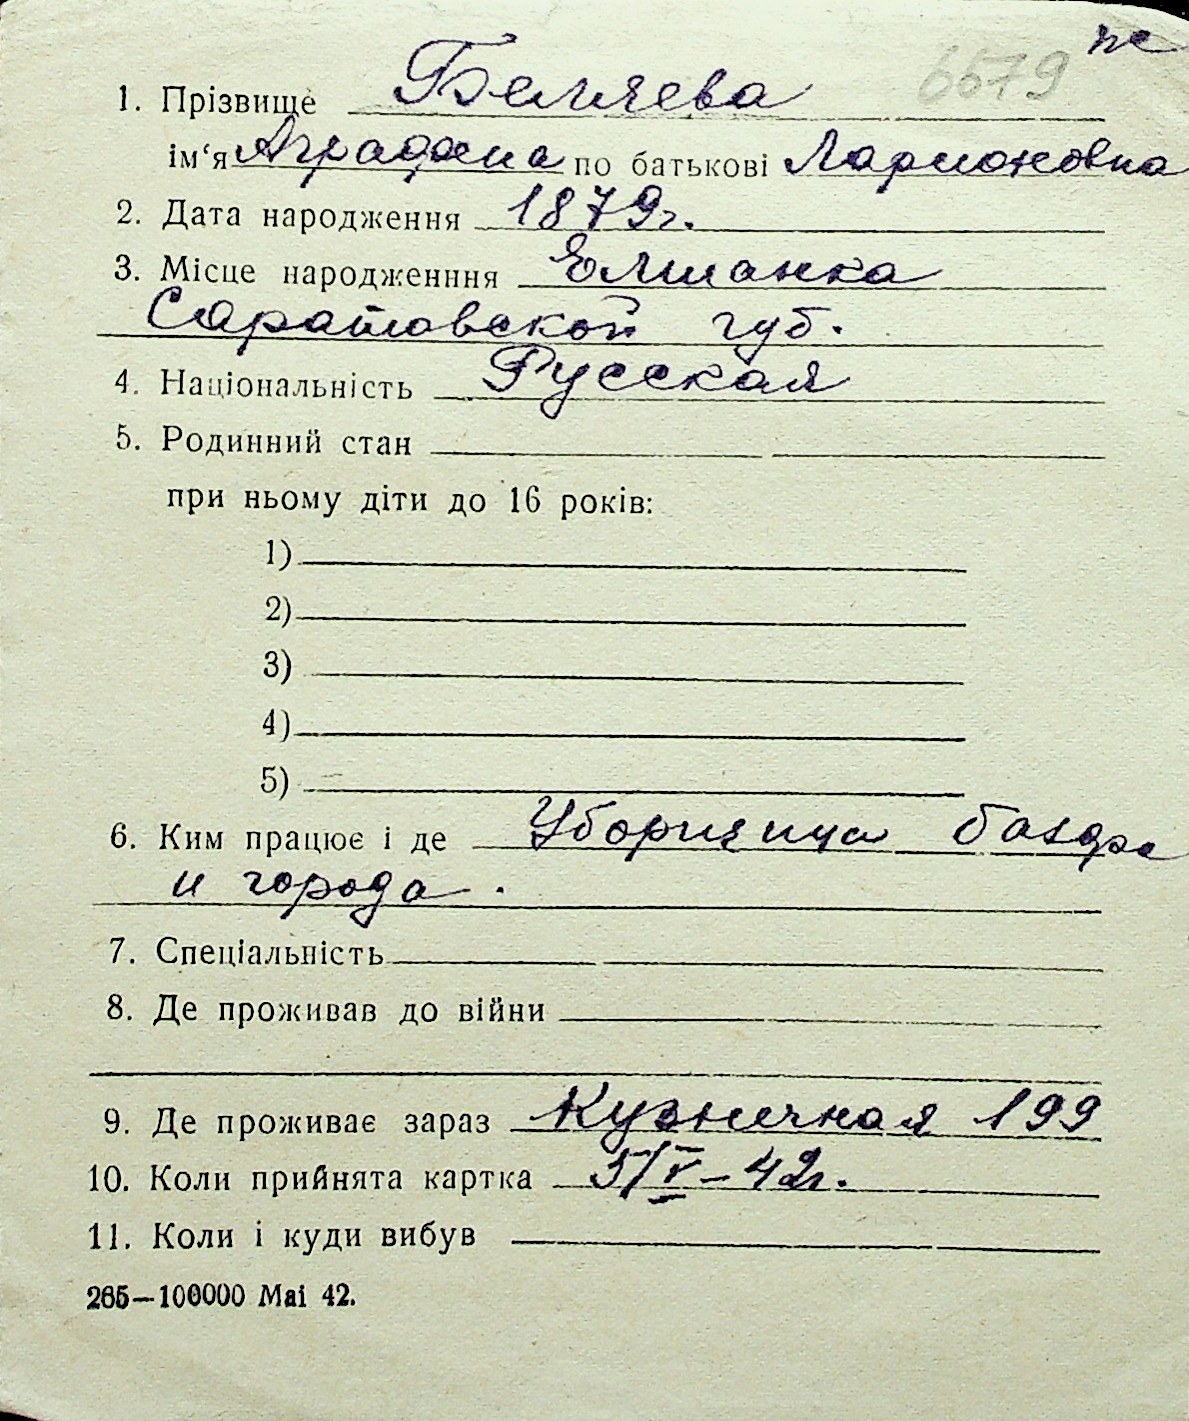 6579 пе
1. Прізвище Беляева
ім‘я Аграфена по батькові Ларионовна
2. Дата народження 1879г.
3. Місце народженння Елшанка
Саратовской губ.
4. Національність Русская
5. Родинний стан
при ньому діти до 16 років:
1)
2)
3)
4)
5)
6. Ким працює і де Уборщица
и города.
7. Спеціальність
8. Де проживав до війни
9. Де проживає зараз Кузнечная 199
10. Коли прийнята картка 5/V–42г.
11. Коли і куди вибув
265—100000 Маі 42.